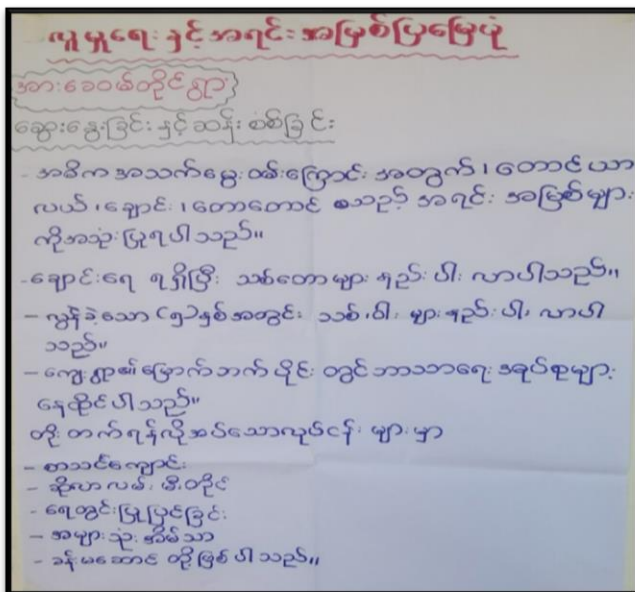 လူမှုရေးနှင့်အရင်းအမြစ်ပြမြေပုံ
အားခေဝမ်တိုင်ရွာ
ဆွေးနွေးခြင်းနှင့်ဆန်းစစ်ခြင်း
- အဓိကအသက်မွေးဝမ်းကြောင်းအတွက်၊တောင်ယာ
လယ်၊ချောင်း၊တောတောင် စသည့် အရင်းအမြစ်များ
ကိုအသုံးပြုရပါသည်။
- ချောင်းရေ ရရှိပြီး သစ်တောများ နည်းပါးလာပါသည်။
- လွန်ခဲ့သော (၅)နှစ်အတွင်း သစ်၊ဝါးများနည်းပါးလာပါ
သည်။
- ကျေးရွာ၏မြောက်ဘက်ပိုင်းတွင်ဘာသာရေးအုပ်စုများ
နေထိုင်ပါသည်။
တိုးတက်ရန်လိုအပ်သောလုပ်ငန်းများမှာ
- စာသင်ကျောင်း
- ဆိုလာလမ်းမီးတိုင်
- ရေတွင်းပြုပြင်ခြင်း
- အများသုံးအိမ်သာ
- ခန်းမဆောင် တို့ဖြစ်ပါသည်။